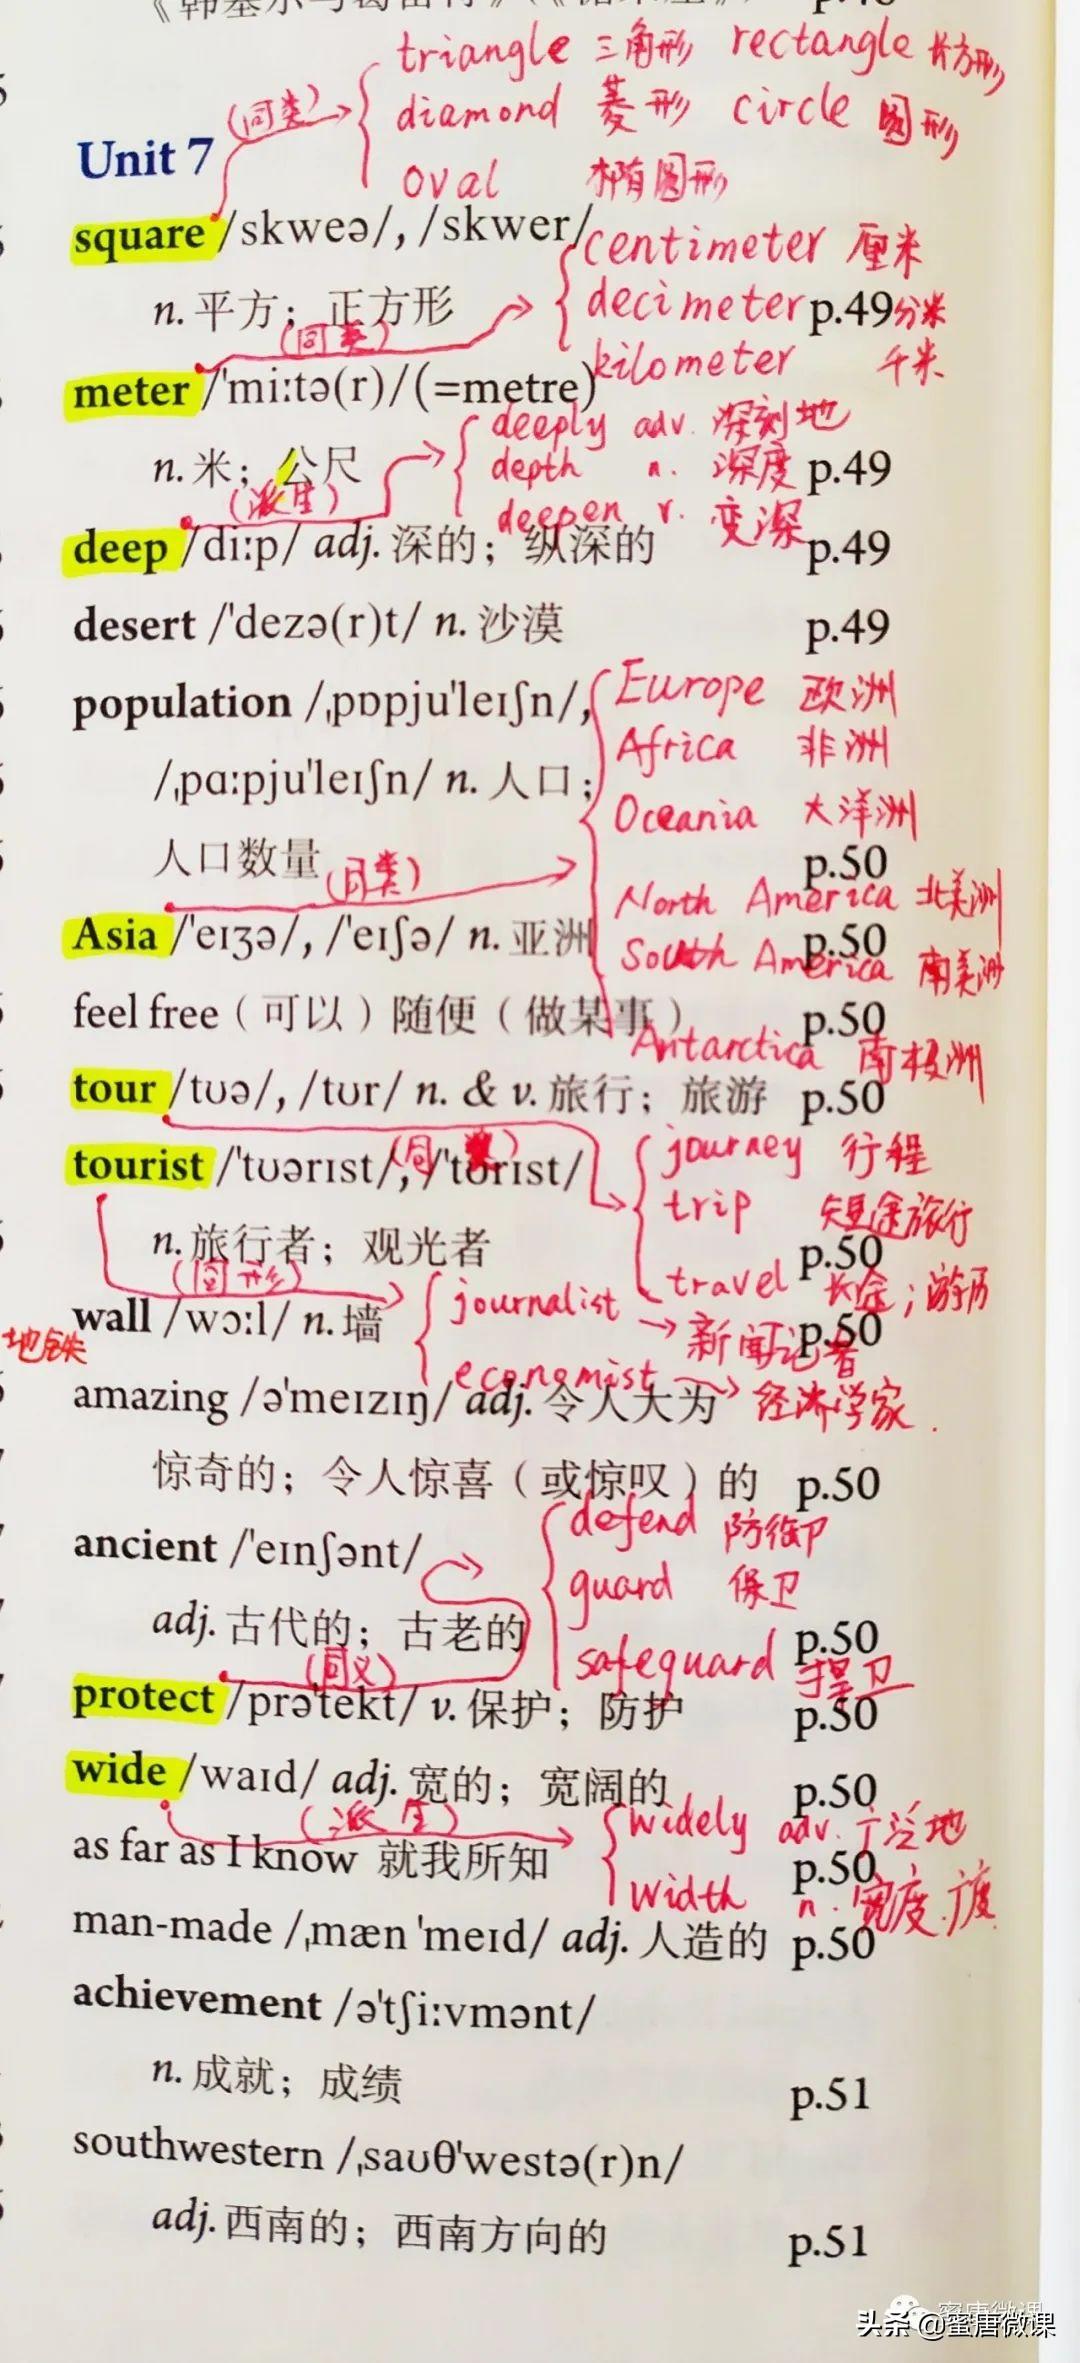 triangle 三角形 rectangle 长方形
(同类) diamond 菱形 circle 圆形
Unit 7
oval 椭圆形
square /skweə/, /skwer/
centimeter 厘米
n. 平方；正方形
decimeter p.49 分米
(同类)
kilometer 千米
meter /ˈmiːtə(r)/ (=metre)
deeply adv. 深刻地
n. 米；公尺 p.49
depth n. 深度
(派生)
deepen v. 变深
deep /diːp/ adj. 深的；纵深的 p.49
desert /ˈdezə(r)t/ n. 沙漠 p.49
population /ˌpɒpjuˈleɪʃn/,
Europe 欧洲
Africa 非洲
/ˌpɑːpjuˈleɪʃn/ n. 人口；
Oceania 大洋洲
人口数量 p.50
(同类)
North America 北美洲
Asia /ˈeɪʒə/, /ˈeɪʃə/ n. 亚洲 p.50
South America 南美洲
feel free（可以）随便（做某事） p.50
Antarctica 南极洲
tour /tʊə/, /tʊr/ n. & v. 旅行；旅游 p.50
(同类)
journey 行程
tourist /ˈtʊərɪst/, /ˈtʊrɪst/
trip 短途旅行
n. 旅行者；观光者 p.50
(同形)
travel 长途；游历
journalist → 新闻记者
wall /wɔːl/ n. 墙 p.50
地铁
economist → 经济学家.
amazing /əˈmeɪzɪŋ/ adj. 令人大为
惊奇的；令人惊喜（或惊叹）的 p.50
defend 防御卫
ancient /ˈeɪnʃənt/
guard 保卫
adj. 古代的；古老的 p.50
safeguard 捍卫
(同义)
protect /prəˈtekt/ v. 保护；防护 p.50
wide /waɪd/ adj. 宽的；宽阔的 p.50
(派生)
widely adv. 广泛地
as far as I know 就我所知 p.50
width n. 宽度.广度
man-made /ˌmæn ˈmeɪd/ adj. 人造的 p.50
achievement /əˈtʃiːvmənt/
n. 成就；成绩 p.51
southwestern /ˌsaʊθˈwestə(r)n/
adj. 西南的；西南方向的 p.51
蜜唐微课
头条 @蜜唐微课